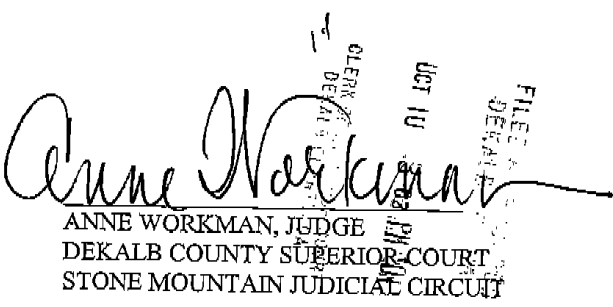 Anne Workman
ANNE WORKMAN, JUDGE
DEKALB COUNTY SUPERIOR COURT
STONE MOUNTAIN JUDICIAL CIRCUIT
CLERK
OCT 10
FILED